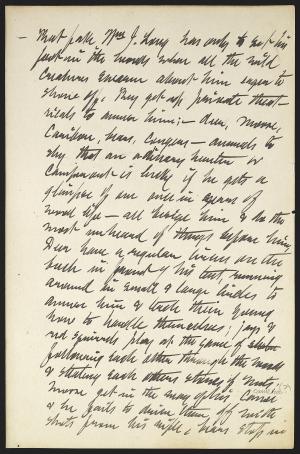 — That fake Wm J. Long has only to set his
foot in the woods when all the wild
creatures swarm about him eager to
show off. They get up private theat-
ricals to amuse him; — deer, moose,
Caribou, bears, Cougars — animals so
shy that an ordinary hunter or
camper out is lucky if he gets a
glimpse of one once in years of
wood life — all besiege him & do the
most unheard of things before him
Deer have a regular circus on the
back in front of his tent, running
around in small & large circles to
amuse him & teach their young
how to handle themselves; jays &
red squirrels play at the game of
following each other through the woods
& stealing each others stores of nuts.
moose get in the way of his canoe
& he fails to drive them off with
shots from his rifle, bears stop in